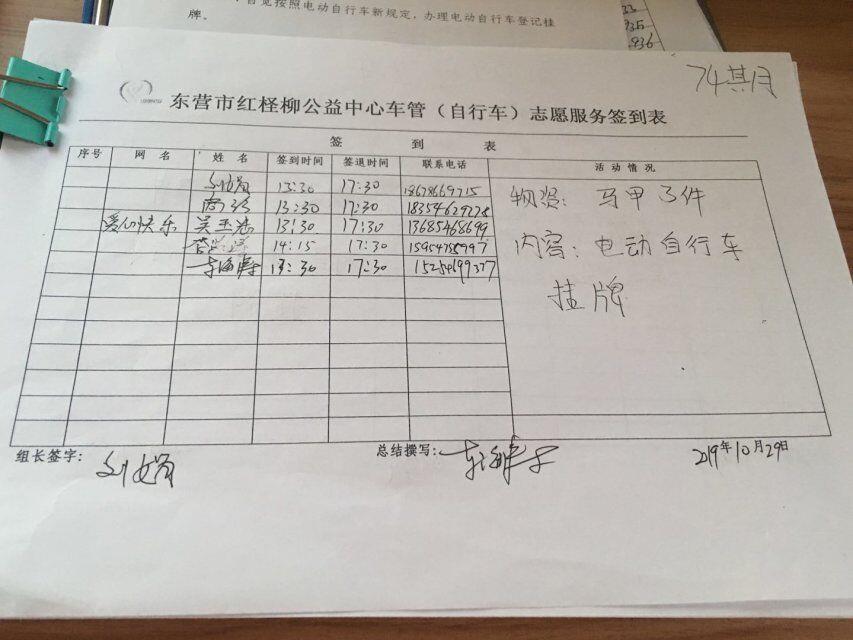 自觉按照电动自行车新规定，办理电动自行车登记挂
牌。
74期
东营市红柽柳公益中心车管（自行车）志愿服务签到表
签 到 表
序号 网 名 姓 名 签到时间 签退时间 联系电话 活 动 情 况
刘娟 13:30 17:30 18678669715
13:30 17:30 18354627228
爱心快乐 吴玉浩 13:30 17:30 13685468699
14:15 17:30
李海霞 13:30 17:30 15254699377
物资：马甲3件
内容：电动自行车
挂牌
组长签字：刘娟 总结撰写： 2019年10月29日